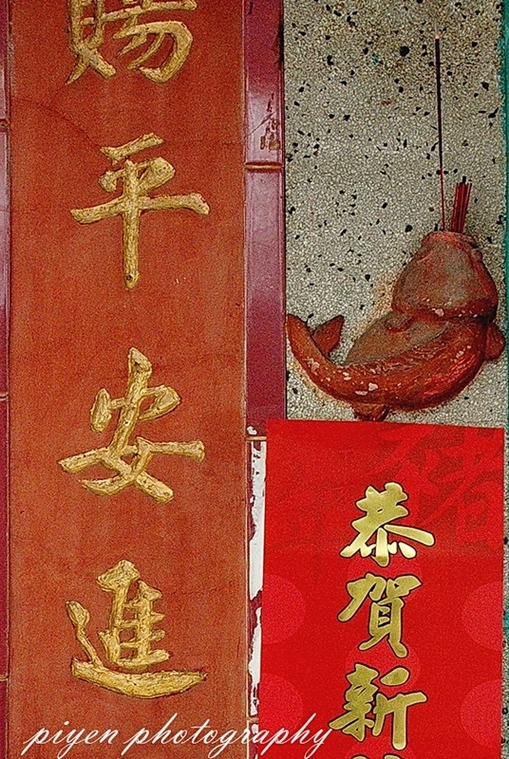 賜平安進
恭賀新
piyen photography